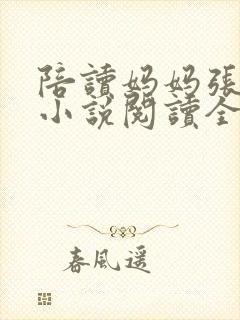 陪讀妈妈張
小說閱讀全
春風遥